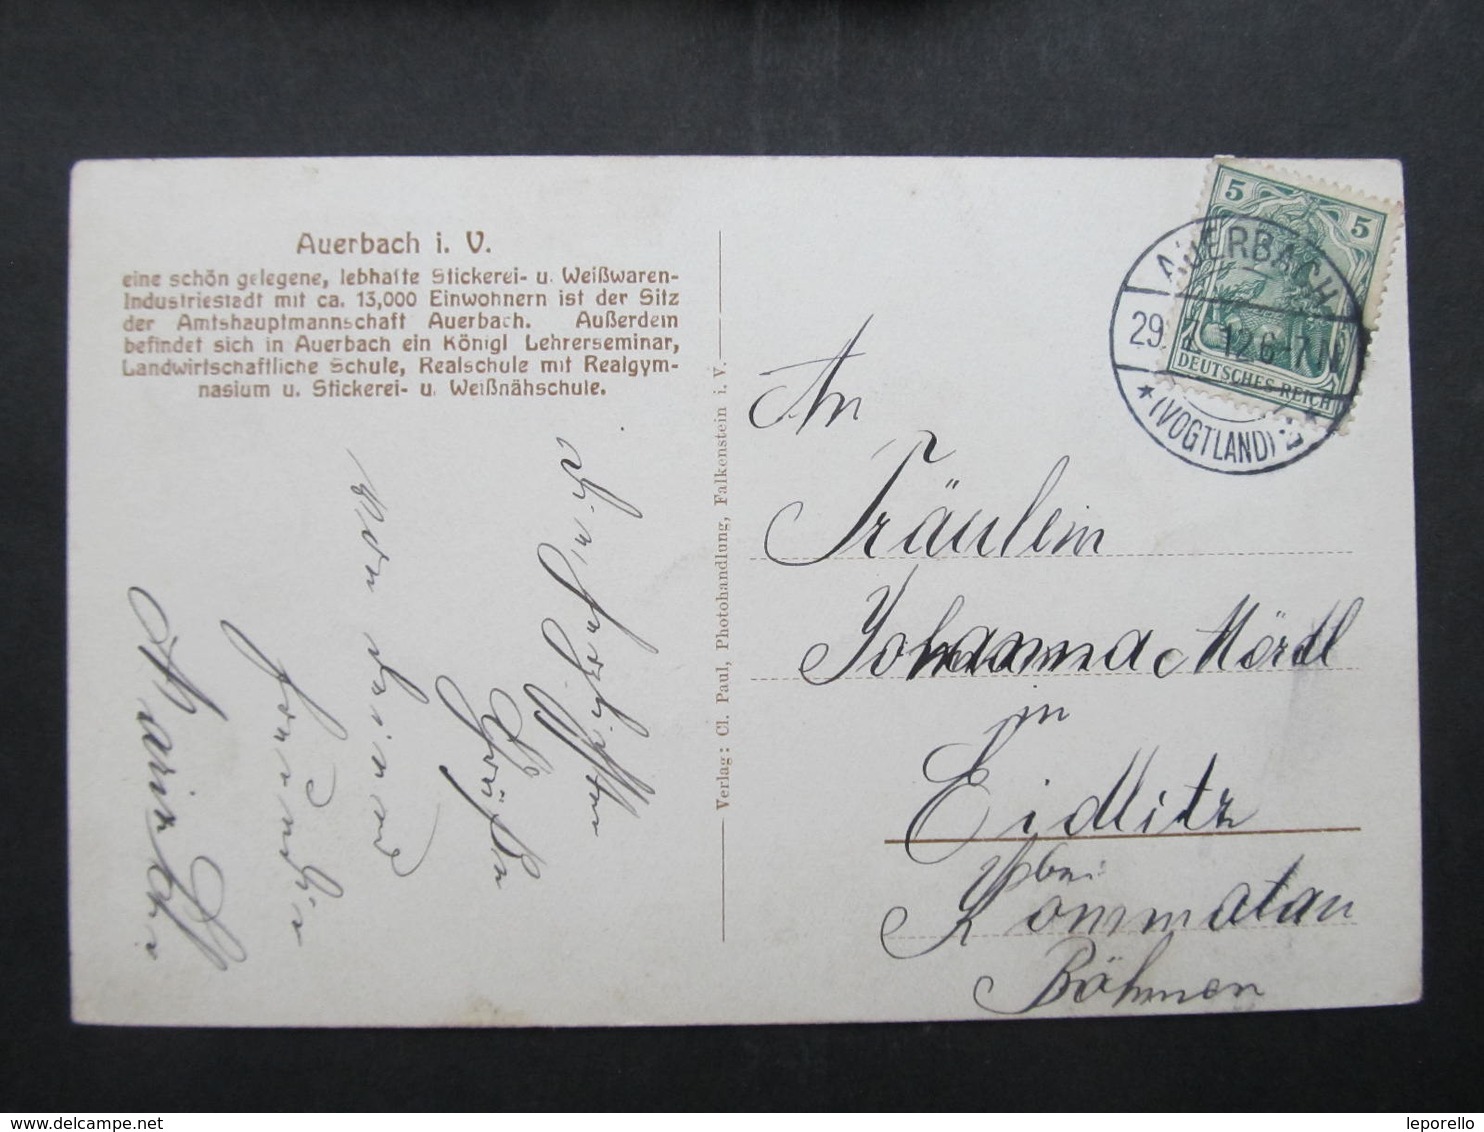 Auerbach i. V.
eine schön gelegene, lebhafte Stickerei- u. Weißwaren-
Industriestadt mit ca. 13,000 Einwohnern ist der Sitz
der Amtshauptmannschaft Auerbach. Außerdem
befindet sich in Auerbach ein Königl Lehrerseminar,
Landwirtschaftliche Schule, Realschule mit Realgym-
nasium u. Stickerei- u. Weißnähschule.
Die herzlichsten
Grüße
von deiner
Freundin
Verlag: Cl. Paul, Photohandlung, Falkenstein i. V.
5 5
DEUTSCHES REICH
AUERBACH
29. 12. 6-7 N
* (VOGTLAND) *
An
Fräulein
Johanna Mördl
in
Eidlitz
bei
Kommatau
Böhmen
leporello